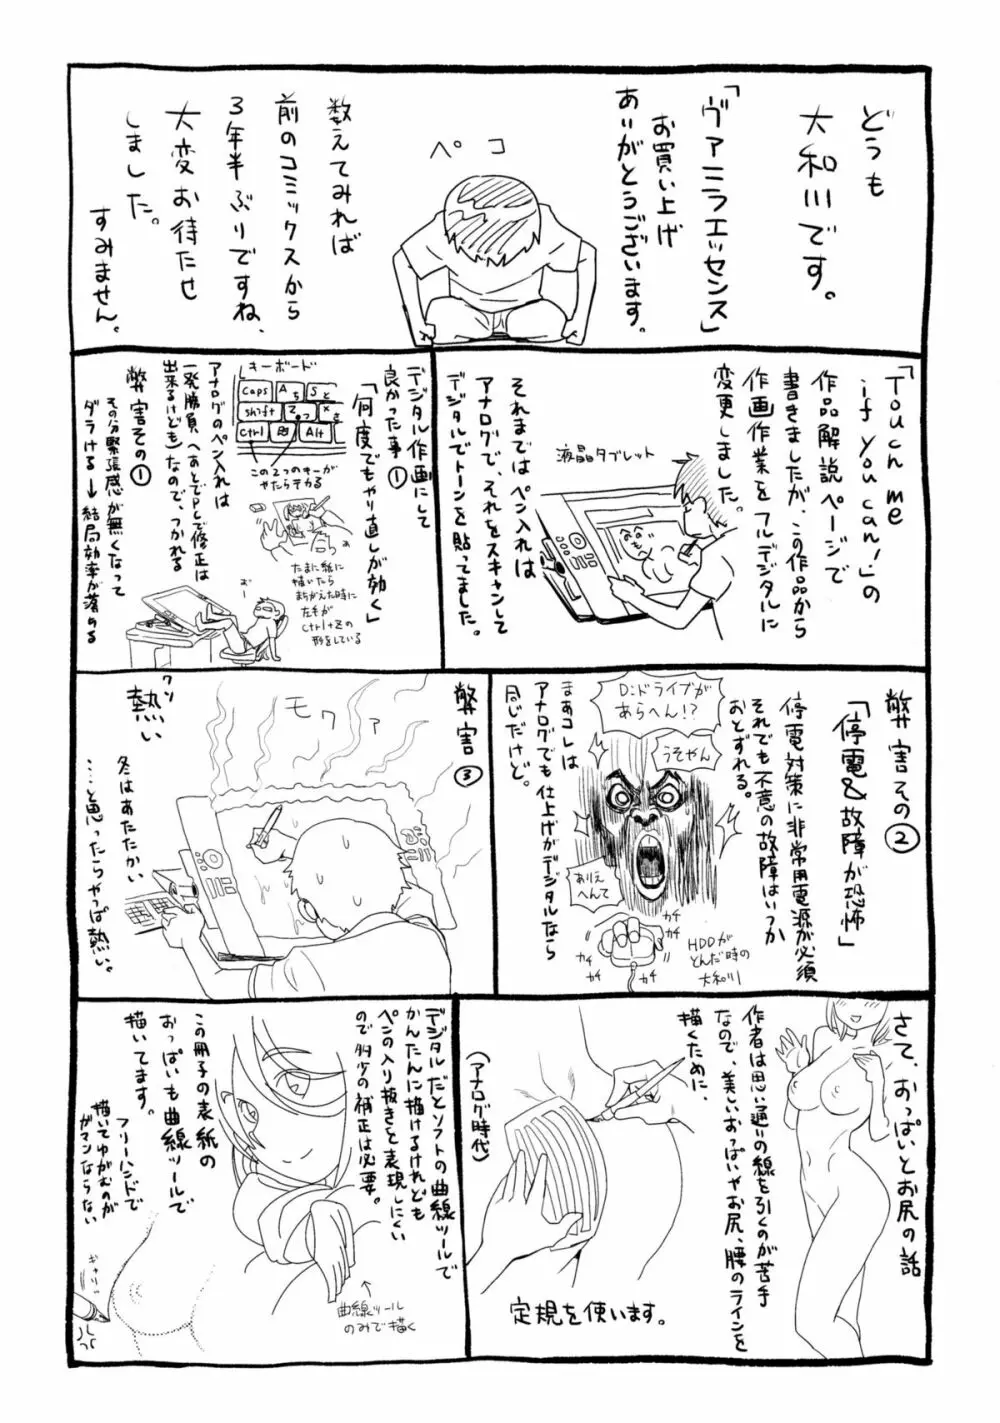 どうも
大和川です。
「ヴァニラエッセンス」
お買い上げ
ありがとうございます。
ペコ
数えてみれば
前のコミックスから
3年半ぶりですね、
大変お待たせ
しました。
すみません。
「Touch me
if you can!」の
作品解説ページで
書きましたが、この作品から
作画作業をフルデジタルに
変更しました。
液晶タブレット
それまではペン入れは
アナログで、それをスキャンして
デジタルでトーンを貼ってました。
デジタル作画にして
良かった事①
「何度でもやり直しが効く」
キーボード
Caps
A
ち
S
と
Shift
Z
っ
X
さ
Ctrl
Alt
この2つのキーが
やたらテカる
たまに紙に
描いたら
まちがえた時に
左手が
Ctrl+Zの
形をしている
アナログのペン入れは
一発勝負(あとでトレで修正は
出来るけども)なので、つかれる
弊害その①
その分緊張感が無くなって
ダラける→結局効率が落ちる
弊害その②
「停電&故障が恐怖」
停電対策に非常用電源が必須
それでも不意の故障はいつか
おとずれる。
D:ドライブが
あらへん!?
うそやん
ありえ
へんて
カチ
カチ
カチ
カチ
カチ
HDDが
とんだ時の
大和川
まあコレは
アナログでも仕上げがデジタルなら
同じだけど。
弊害③
モワァ
熱い
冬はあたたかい
……と思ったらやっぱ熱い。
さて、おっぱいとお尻の話
作者は思い通りの線を引くのが苦手
なので、美しいおっぱいやお尻、腰のラインを
描くために、
(アナログ時代)
定規を使います。
デジタルだとソフトの曲線ツールで
かんたんに描けるけれども
ペンの入り抜きを表現しにくい
ので多少の補正は必要。
この冊子の表紙の
おっぱいも曲線ツールで
描いてます。
フリーハンドで
描いてゆがむのが
ガマンならない
曲線ツール
のみで描く